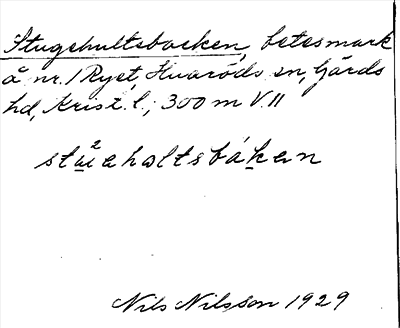 Stugehultsbacken, betesmark
å nr. 1 Ryet, Huaröds sn, Gärds
hd, Krist. l.; 300 m V. 11
stu²eholtsbákan
Nils Nilsson 1929